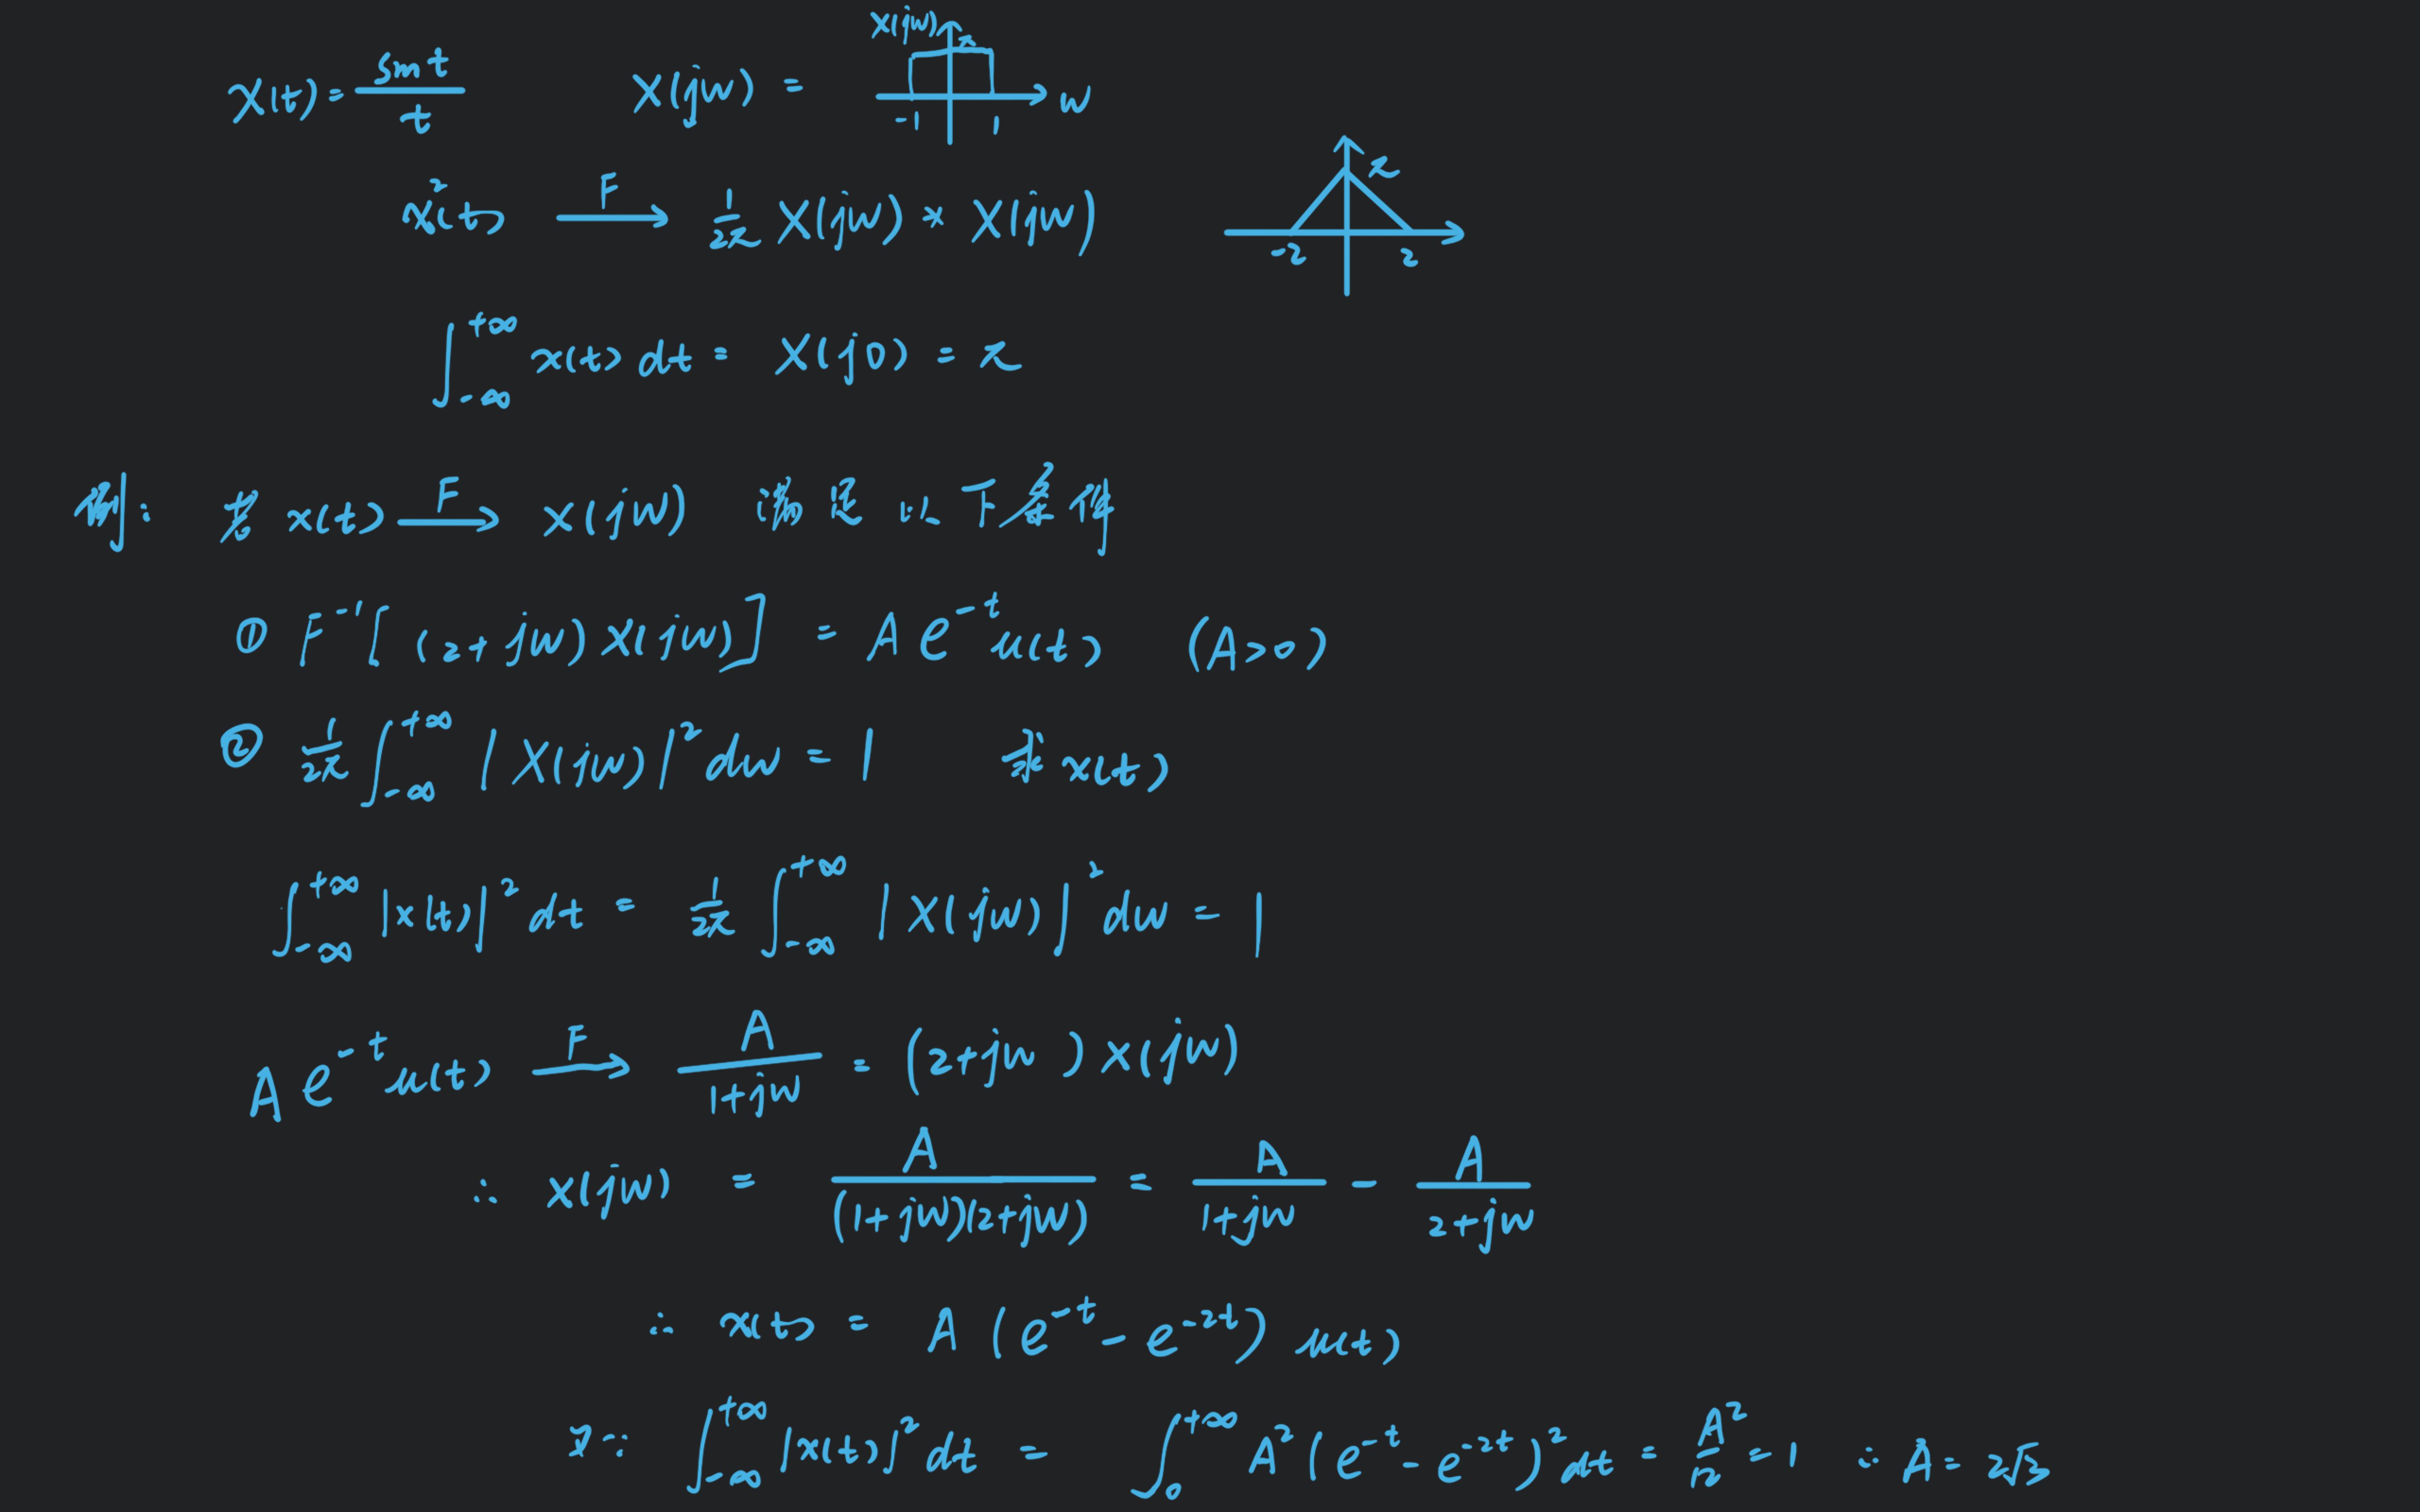 x(t) = sin t / t    X(jω) =    X(jω)  π  -1  1  ω
x²(t) —F→ 1/2π X(jω) * X(jω)    π  -2  2
∫_{-∞}^{+∞} x(t) dt = X(j0) = π
例: 若 x(t) —F→ X(jω) 满足以下条件
① F⁻¹[(2+jω)X(jω)] = A e^{-t} u(t)  (A>0)
② 1/2π ∫_{-∞}^{+∞} |X(jω)|² dω = 1    求 x(t)
∫_{-∞}^{+∞} |x(t)|² dt = 1/2π ∫_{-∞}^{+∞} |X(jω)|² dω = 1
A e^{-t} u(t) —F→ A/(1+jω) = (2+jω) X(jω)
∴ X(jω) = A/((1+jω)(2+jω)) = A/(1+jω) - A/(2+jω)
∴ x(t) = A (e^{-t} - e^{-2t}) u(t)
又∵ ∫_{-∞}^{+∞} |x(t)|² dt = ∫_0^{+∞} A² (e^{-t} - e^{-2t})² dt = A²/12 = 1 ∴ A = 2√3